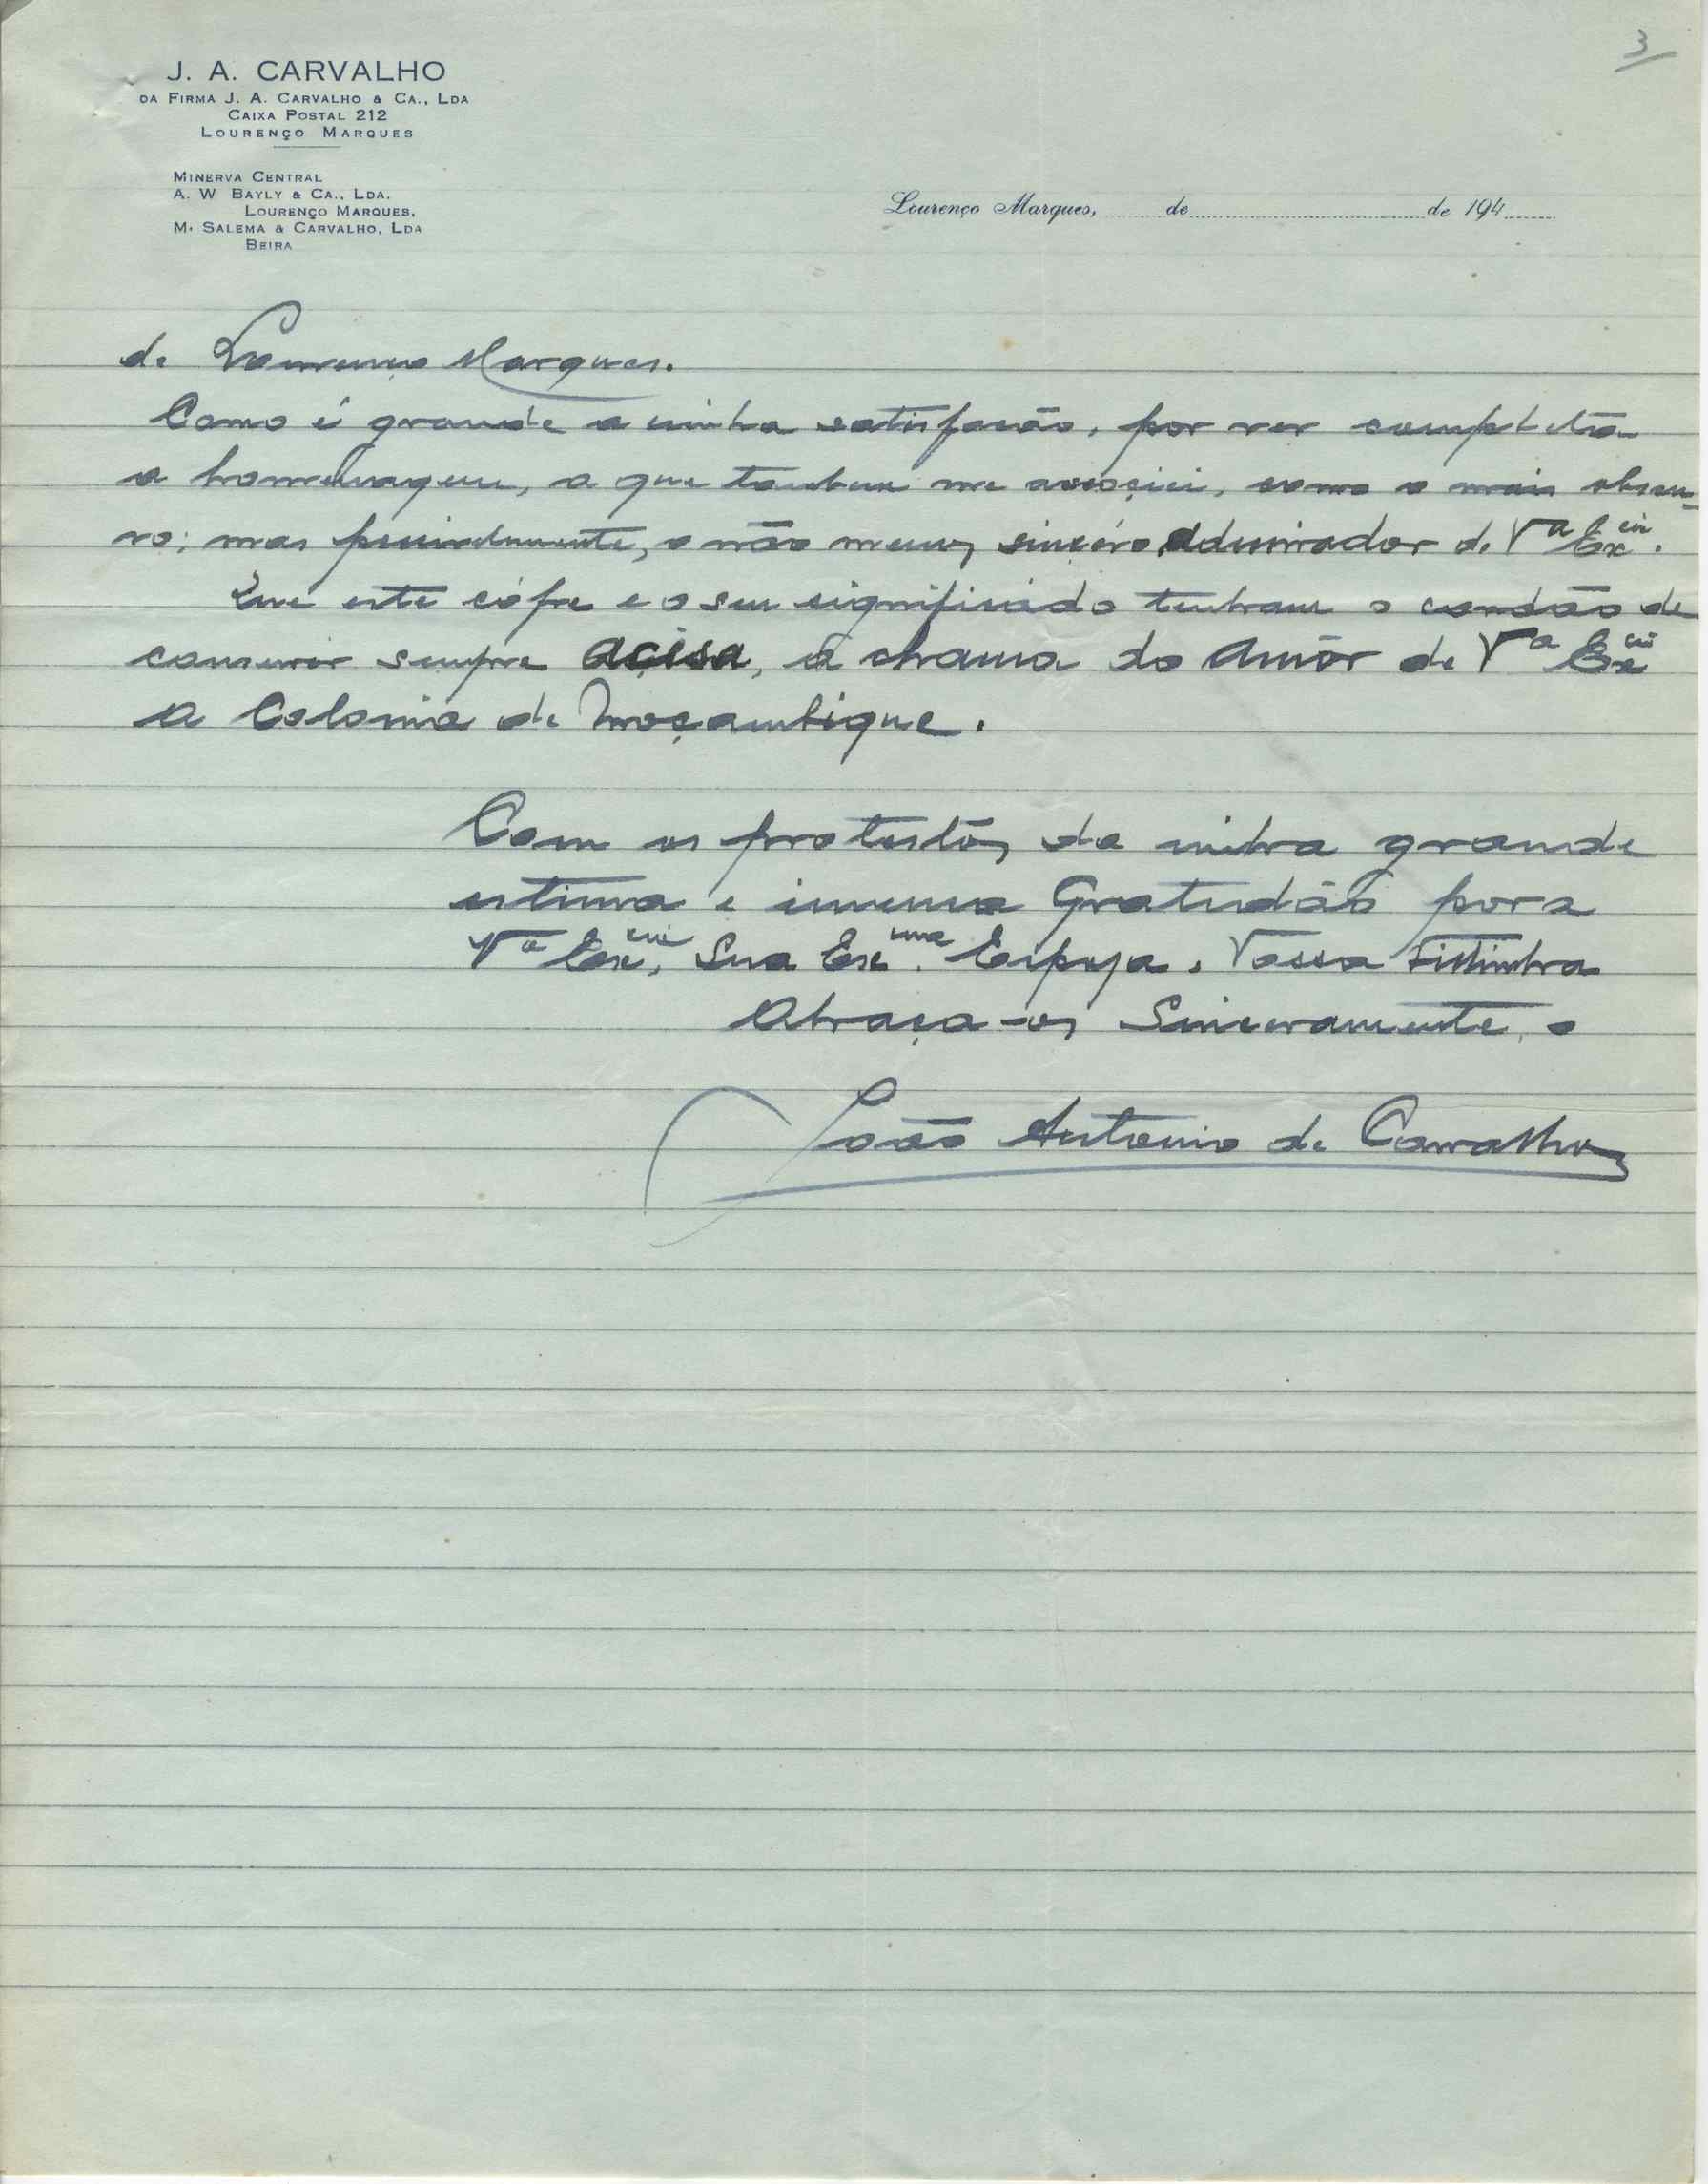 3
J. A. CARVALHO
DA FIRMA J. A. CARVALHO & CA., LDA
CAIXA POSTAL 212
LOURENÇO MARQUES
MINERVA CENTRAL
A. W BAYLY & CA., LDA.
LOURENÇO MARQUES.
M. SALEMA & CARVALHO, LDA
BEIRA
Lourenço Marques, de de 194
de Lourenço Marques.
Como é grande a minha satisfação, por ver
a homenagem, a que tambem me associei, como o mais obscu-
ro; mas, o não menos sincéro admirador de Vª Exciª.
Que este cófre e o seu significado tenham o condão de
conservar sempre acêsa, a chama do Amôr de Vª Exciª
a Colonia de Moçambique.
Com os protestos da minha grande
estima e imensa Gratidão para
Vª Exciª, Sua Excma. Espoza. Vossa Filhinha
Abraça-os Sinceramente, o
João Antonio de Carvalho